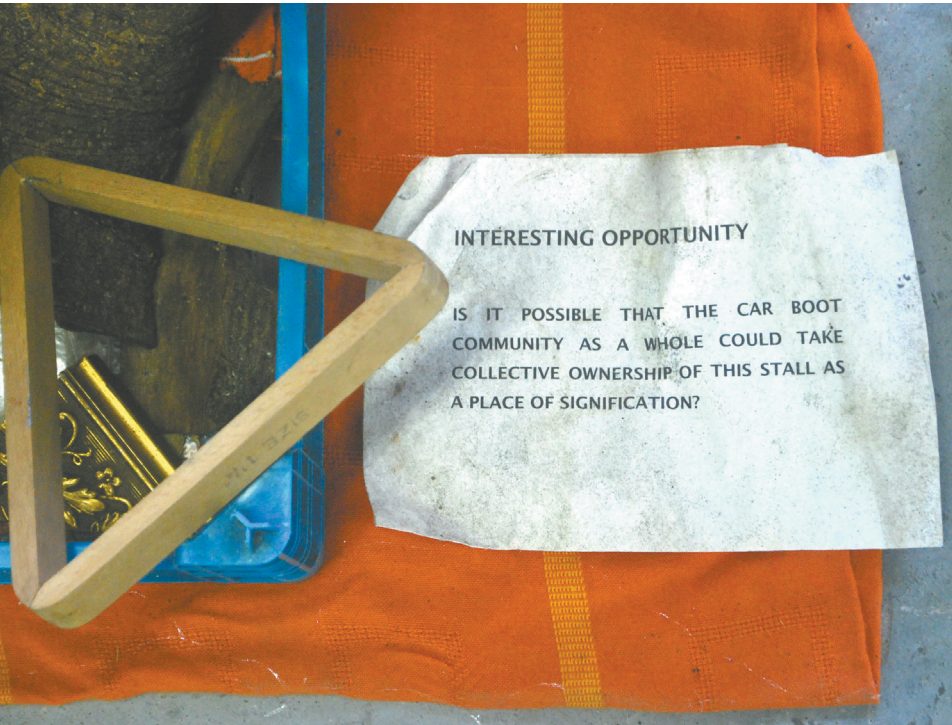 INTERESTING OPPORTUNITY
IS IT POSSIBLE THAT THE CAR BOOT
COMMUNITY AS A WHOLE COULD TAKE
COLLECTIVE OWNERSHIP OF THIS STALL AS
A PLACE OF SIGNIFICATION?
SIZE